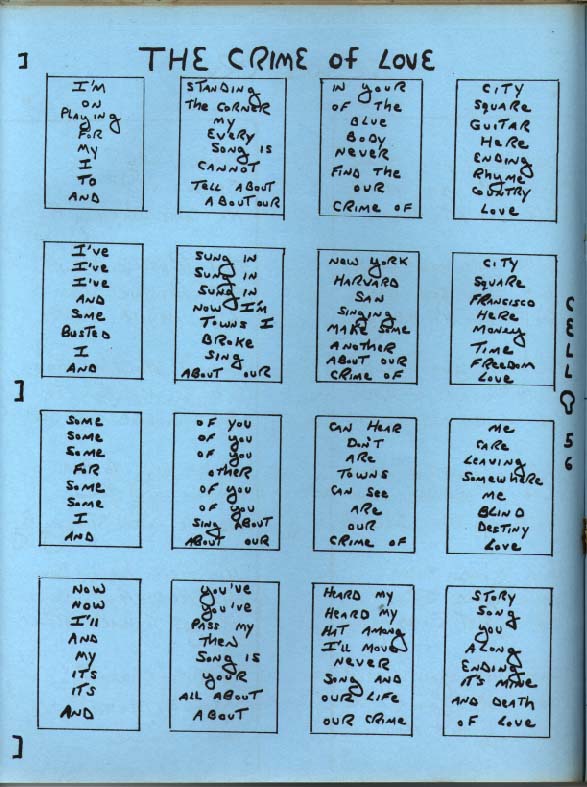 THE CRIME OF LOVE
I'M STANDING IN YOUR CITY
ON THE CORNER OF THE SQUARE
PLAYING MY BLUE GUITAR
FOR EVERY BODY HERE
MY SONG IS NEVER ENDING
I CANNOT FIND THE RHYME
TO TELL ABOUT OUR COUNTRY
AND ABOUT OUR CRIME OF LOVE
I'VE SUNG IN NEW YORK CITY
I'VE SUNG IN HARVARD SQUARE
I'VE SUNG IN SAN FRANCISCO
AND NOW I'M SINGING HERE
SOME TOWNS I MAKE SOME MONEY
BUSTED BROKE ANOTHER TIME
I SING ABOUT OUR FREEDOM
AND ABOUT OUR CRIME OF LOVE
SOME OF YOU CAN HEAR ME
SOME OF YOU DON'T CARE
SOME OF YOU ARE LEAVING
FOR OTHER TOWNS SOMEWHERE
SOME OF YOU CAN SEE ME
SOME OF YOU ARE BLIND
I SING ABOUT OUR DESTINY
AND ABOUT OUR CRIME OF LOVE
NOW YOU'VE HEARD MY STORY
NOW YOU'VE HEARD MY SONG
I'LL PASS MY HAT AMONG YOU
AND THEN I'LL MOVE ALONG
MY SONG IS NEVER ENDING
ITS YOUR SONG AND IT'S MINE
ITS ALL ABOUT OUR LIFE AND DEATH
AND ABOUT OUR CRIME OF LOVE
CELL
56